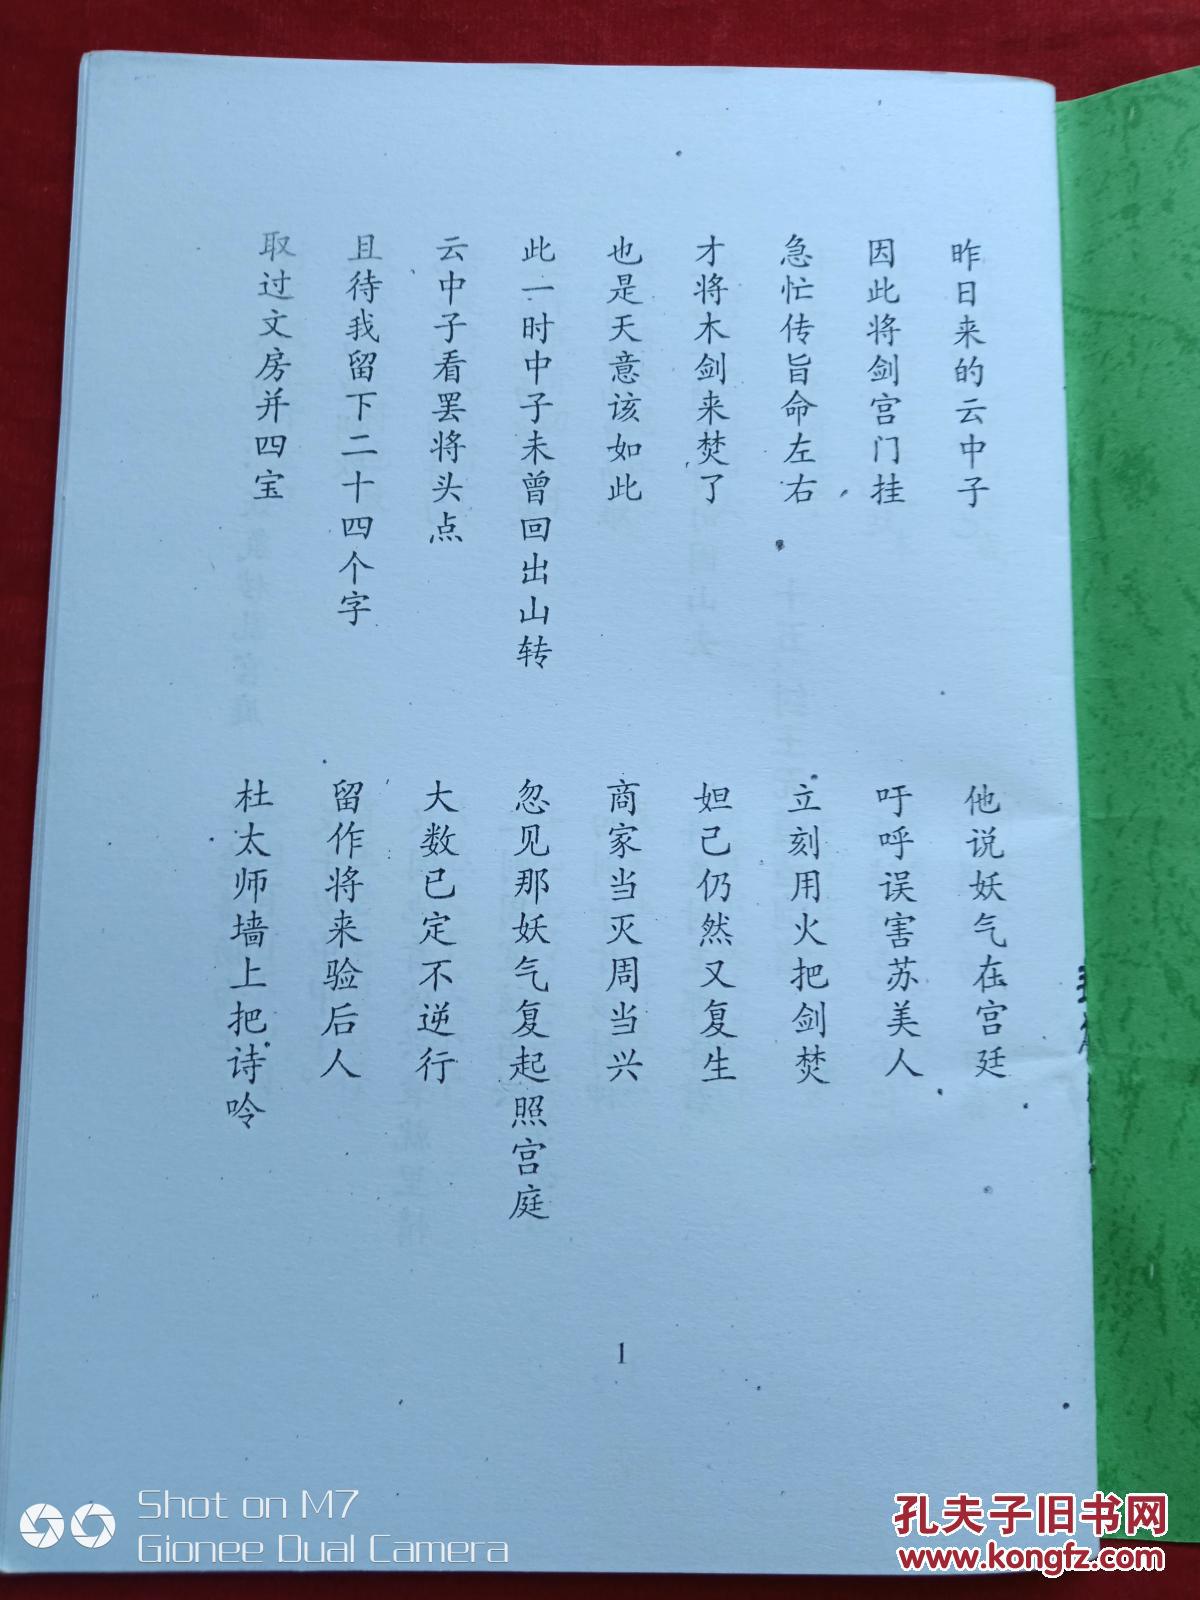 昨日来的云中子
他说妖气在宫廷
因此将剑宫门挂
吁呼误害苏美人
急忙传旨命左右
立刻用火把剑焚
才将木剑来焚了
妲己仍然又复生
也是天意该如此
商家当灭周当兴
此一时中子未曾回出山转
忽见那妖气复起照宫庭
云中子看罢将头点
大数已定不逆行
且待我留下二十四个字
留作将来验后人
取过文房并四宝
杜太师墙上把诗吟
1
Shot on M7
Gionee Dual Camera
孔夫子旧书网
www.kongfz.com